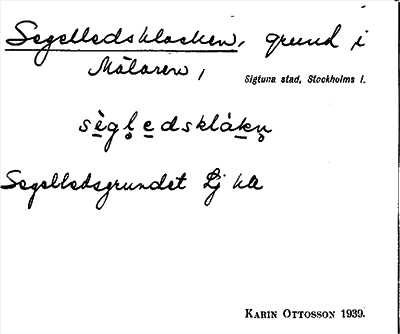 Segelledsklacken, grund i
Mälaren,
Sigtuna stad, Stockholms l.
sègledsklàkn
Segelledsgrundet Lj kla
KARIN OTTOSSON 1939.